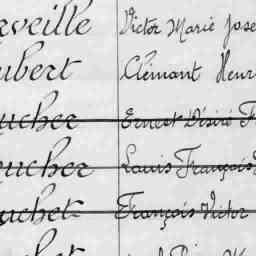 rveille Victor Marie Jose
ubert Clémant Henr
ucher Ernest Désiré F
ucher Louis François
uchet François Victor